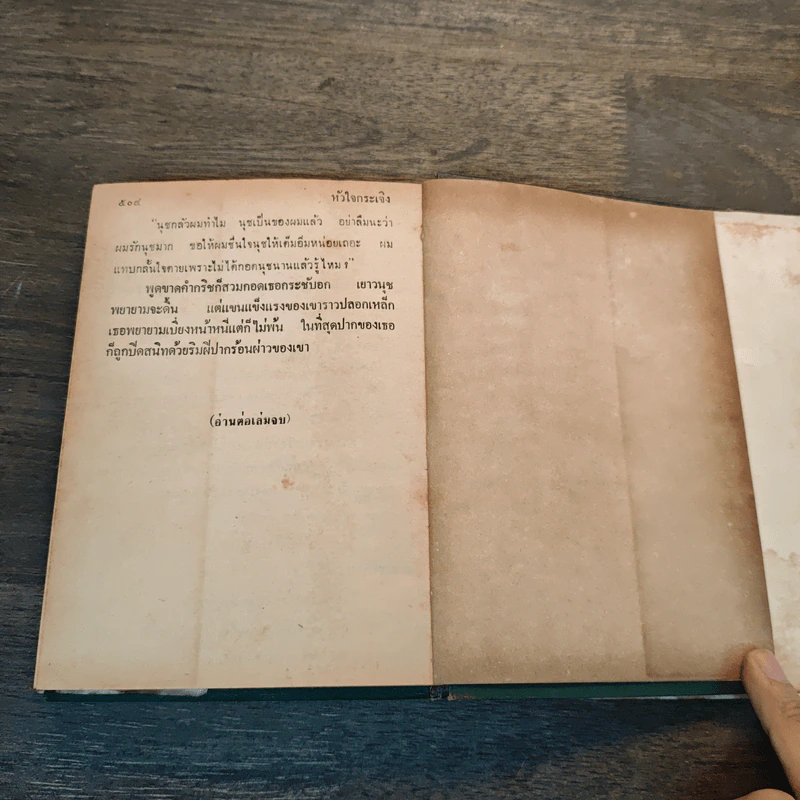 ๕๐๔ หัวใจกระเจิง
"นุชกลัวผมทำไม นุชเป็นของผมแล้ว อย่าลืมนะว่า
ผมรักนุชมาก ขอให้ผมชื่นใจนุชให้เต็มอิ่มหน่อยเถอะ ผม
แทบกลั้นใจตายเพราะไม่ได้กอดนุชนานแล้วรู้ไหม ?"
พูดขาดคำกริชก็สวมกอดเธอกระชับอก เยาวนุช
พยายามจะดิ้น แต่แขนแข็งแรงของเขาราวปลอกเหล็ก
เธอพยายามเบี่ยงหน้าหนีแต่ก็ไม่พ้น ในที่สุดปากของเธอ
ก็ถูกปิดสนิทด้วยริมฝีปากร้อนผ่าวของเขา
(อ่านต่อเล่มจบ)